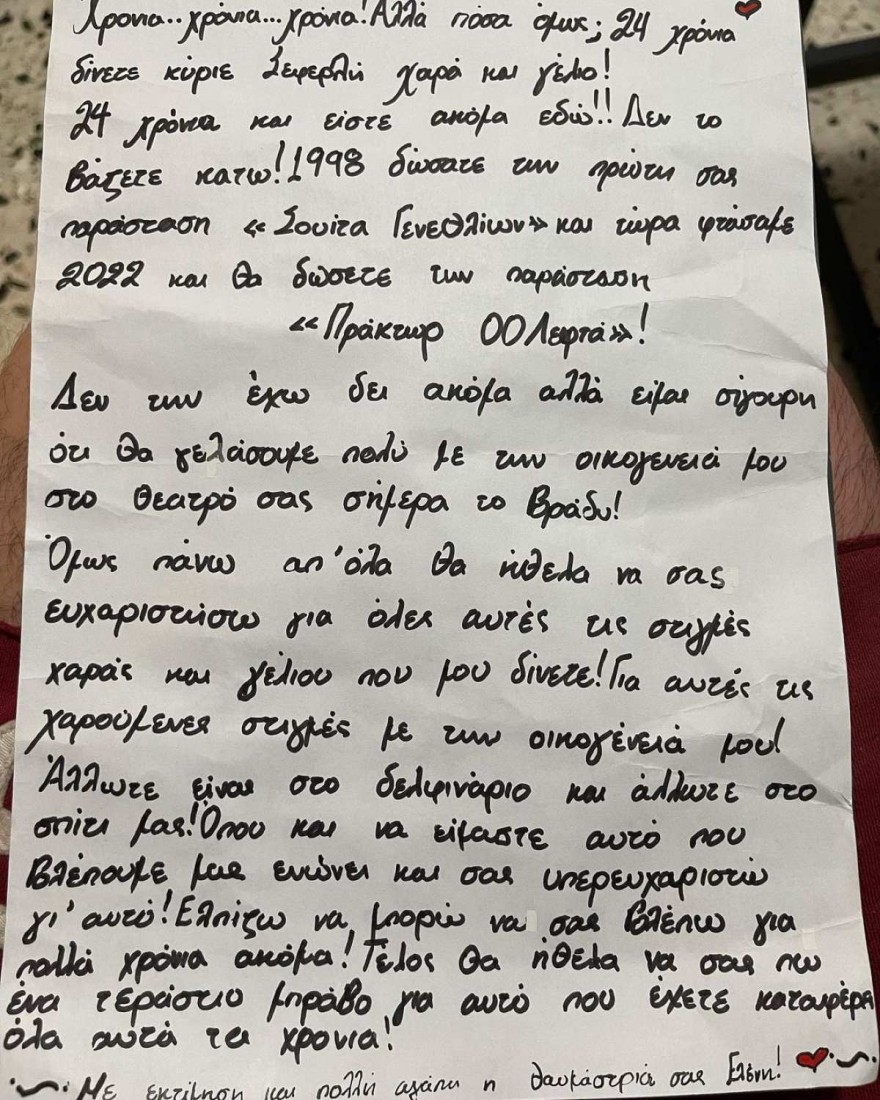 Χρόνια..χρόνια...χρόνια! Αλλά πόσα όμως; 24 χρόνια
δίνετε κύριε Σεφερλή χαρά και γέλιο!
24 χρόνια και είστε ακόμα εδώ!! Δεν το
βάζετε κατω! 1998 δώσατε την πρώτη σας
παράσταση «Σουίτα Γενεθλίων» και τώρα φτάσαμε
2022 και θα δώσετε την παράσταση
«Πράκτωρ 00Λεφτά»!
Δεν την έχω δει ακόμα αλλά είμαι σίγουρη
ότι θα γελάσουμε πολύ με την οικογενειά μου
στο θεατρό σας σήμερα το βράδυ!
Όμως πάνω απ'όλα θα ήθελα να σας
ευχαριστήσω για όλες αυτές τις στιγμές
χαράς και γέλιου που μου δίνετε! Για αυτές τις
χαρούμενες στιγμές με την οικογένειά μου!
Άλλωτε είναι στο δελφινάριο και άλλωτε στο
σπίτι μας! Όπου και να είμαστε αυτό που
βλέπουμε μας ενώνει και σας υπερευχαριστώ
γι'αυτό! Ελπίζω να μπορώ να σας βλέπω για
πολλά χρόνια ακόμα! Τέλος θα ήθελα να σας πω
ένα τεράστιο μπράβο για αυτό που έχετε καταφέρει
όλα αυτά τα χρονια!
Με εκτίμηση και πολλή αγάπη η θαυμάστριά σας Ελένη!